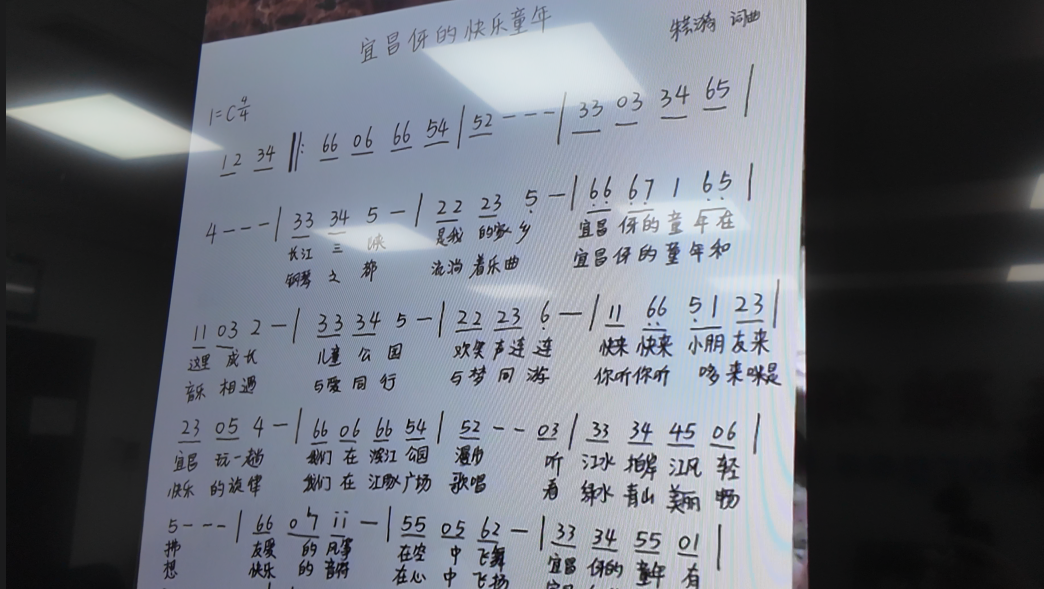 宜昌伢的快乐童年
词曲
1=C 4/4
1 2 34 ‖: 66 06 66 54 | 52 - - - | 33 03 34 65 |
4 - - - | 33 34 5 - | 22 23 5 - | 66 67 1 65 |
长江 三 峡 是我 的家 乡 宜昌 伢的 童 年在
钢琴 之 都 流淌 着乐 曲 宜昌 伢的 童 年和
11 03 2 - | 33 34 5 - | 22 23 6 - | 11 66 51 23 |
这里 成长 儿童 公 园 欢笑 声连 连 快来 快来 小朋 友来
音乐 相遇 与爱 同 行 与梦 同 游 你听 你听 哆 来咪是
23 05 4 - | 66 06 66 54 | 52 - - 03 | 33 34 45 06 |
宜昌 玩一趟 我们 在 滨江 公园 漫步 听 江水 拍岸 江风 轻
快乐 的旋律 我们 在 江豚 广场 歌唱 看 绿水 青山 美丽 畅
5 - - - | 66 07 ii - | 55 05 62 - | 33 34 55 01 |
拂 友爱 的 风筝 在空 中 飞舞 宜昌 伢的 童年 有
想 快乐 的 音符 在心 中 飞扬